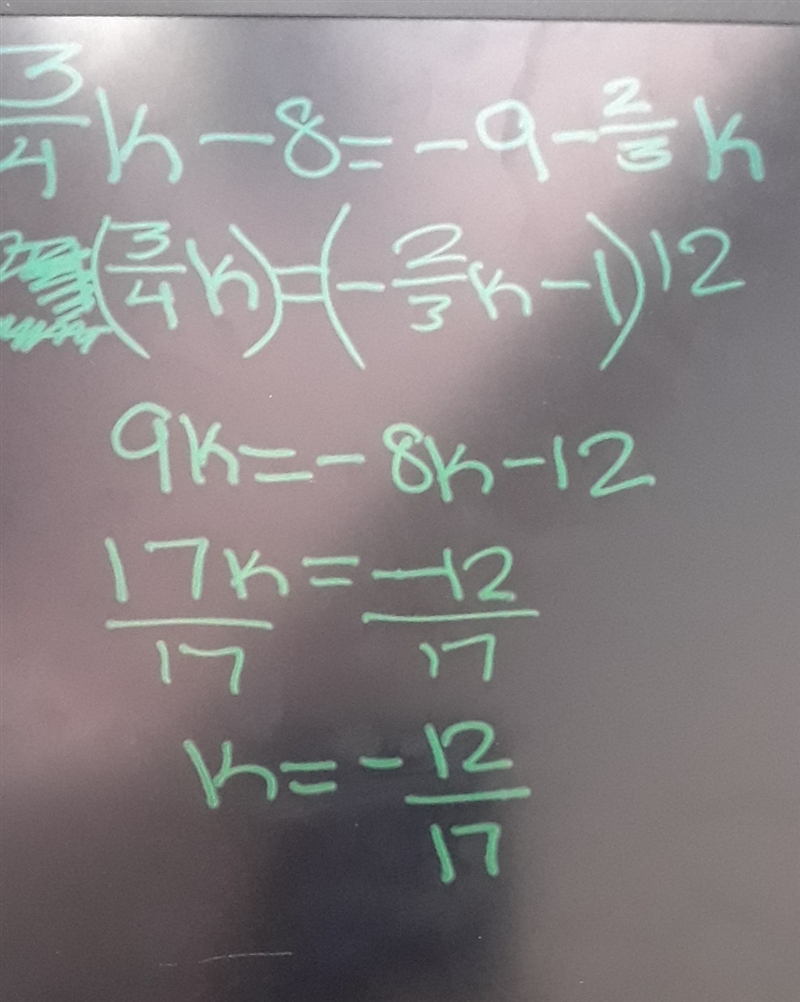 3/4 k - 8 = -9 - 2/3 k
(3/4 k) = (-2/3 k - 1) 12
9k = -8k - 12
17k/17 = -12/17
k = -12/17